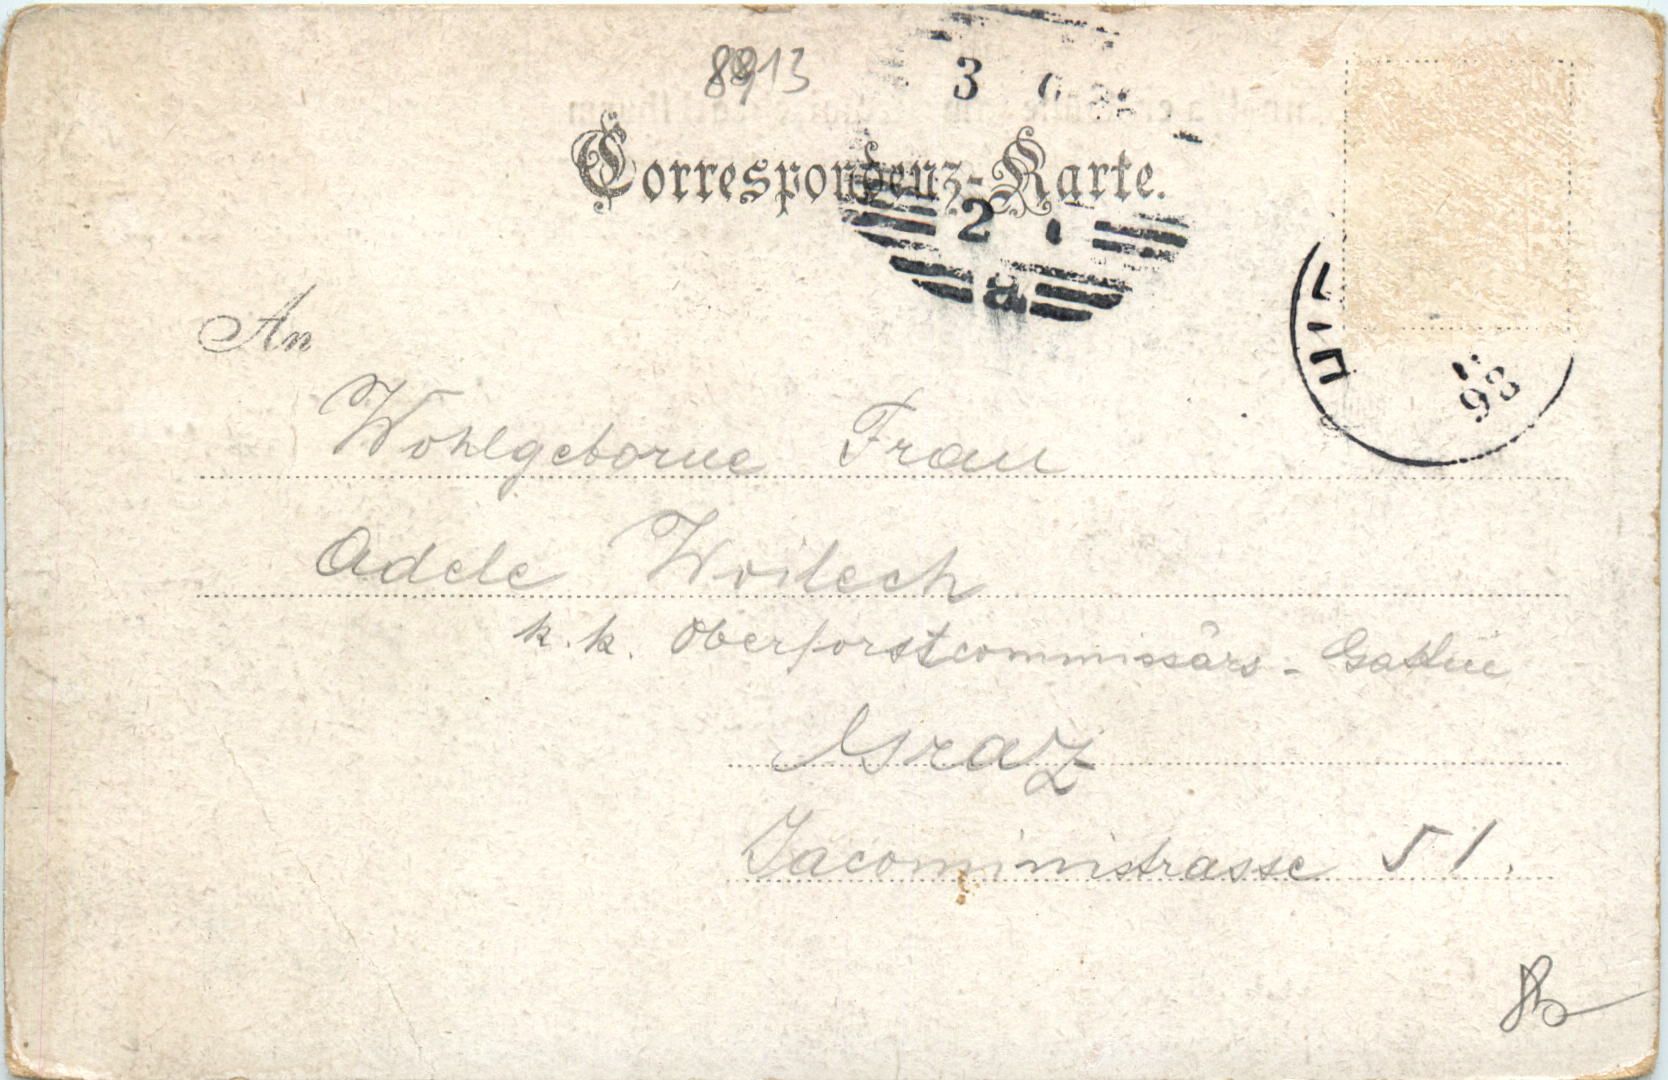 8913
3
Correspondenz-Karte.
2
a
98
An
Wohlgeborne Frau
Adele Woilech
k. k. Oberforstcommissärs - Gattin
Graz
Jacoministrasse 51.